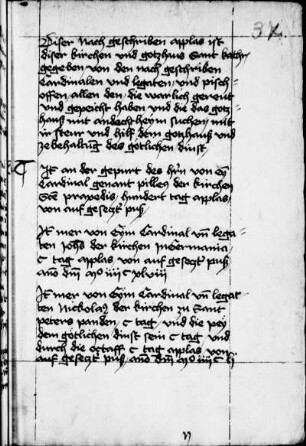 37
Diser nach geschriben applas ist
diser kirchen und gotzhaus Sant kathr
gegeben von den nach geschriben
Cardinalen und legaten und pisch
offen allen den die warlich gerewt
und gepeicht haben und die das gotz
hauß mit andacht heym suchen mit
ir stewr und hilf dem gotzhauß und
zebehaltug des götlichen dinst
It an der gepurt des hrn von eim
Cardinal genant der kirchen
Sce praxedis hundert tag applas
von auf gesetzt puß
It mer von Eym Cardinal un lega
ten Johs der kirchen
C tag applas von auf gesetzt puß
ano dm mo iiii C xlviii
It mer von Eym Cardinal un legat
ten Nickolaz der kirchen zu Sant
peters panden C tag und die pei
dem götlichen dinst sein C tag und
durch die octaff C tag applas von
auf gesetzt puß ano dm mo iiii C li